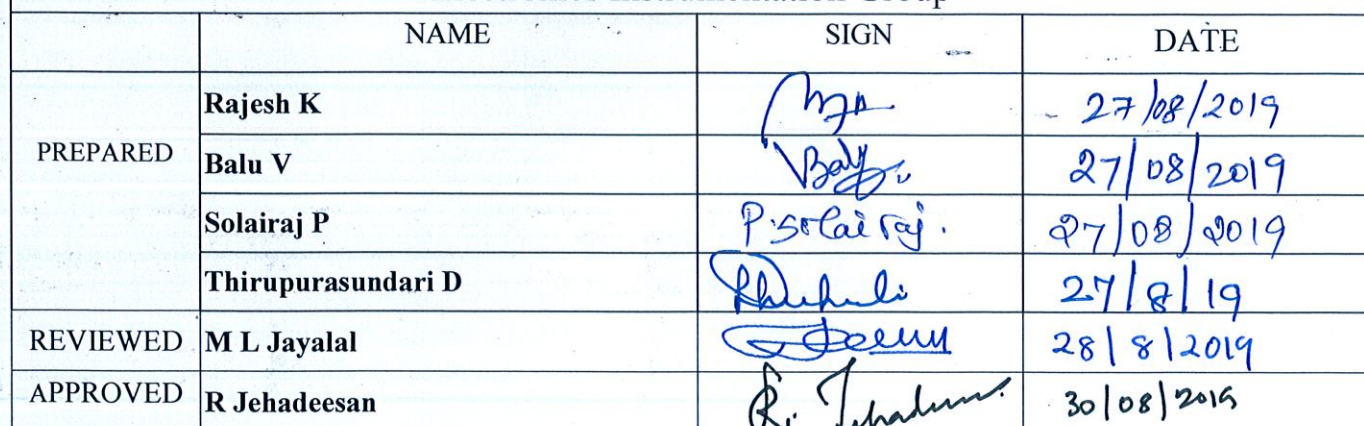 Instrumentation Group
NAME SIGN DATE
Rajesh K 27/08/2019
PREPARED Balu V Balu 27/08/2019
Solairaj P P. Solairaj. 27/08/2019
Thirupurasundari D 27/8/19
REVIEWED M L Jayalal 28/8/2019
APPROVED R Jehadeesan R. Jehadeesan 30/08/2019